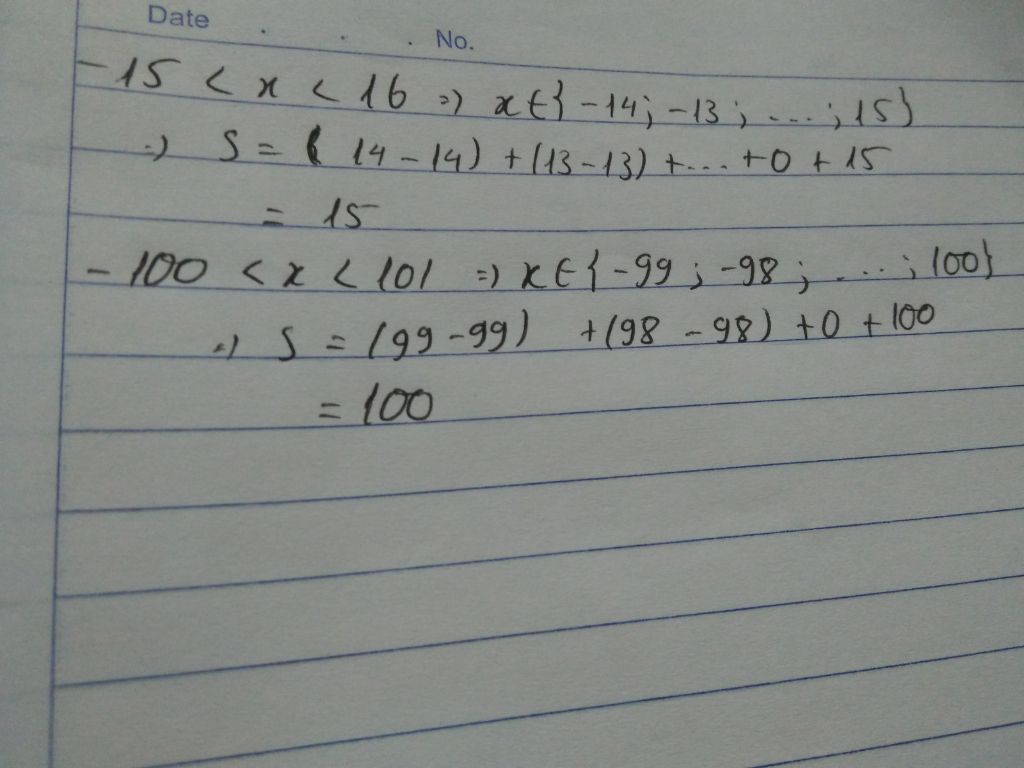 Date . . . No.
-15 < x < 16 => x ∈ { -14; -13; ...; 15}
=> S = ( 14 - 14) + (13 - 13) + ... + 0 + 15
= 15
-100 < x < 101 => x ∈ { -99; -98; ...; 100}
=> S = (99 - 99) + (98 - 98) + 0 + 100
= 100